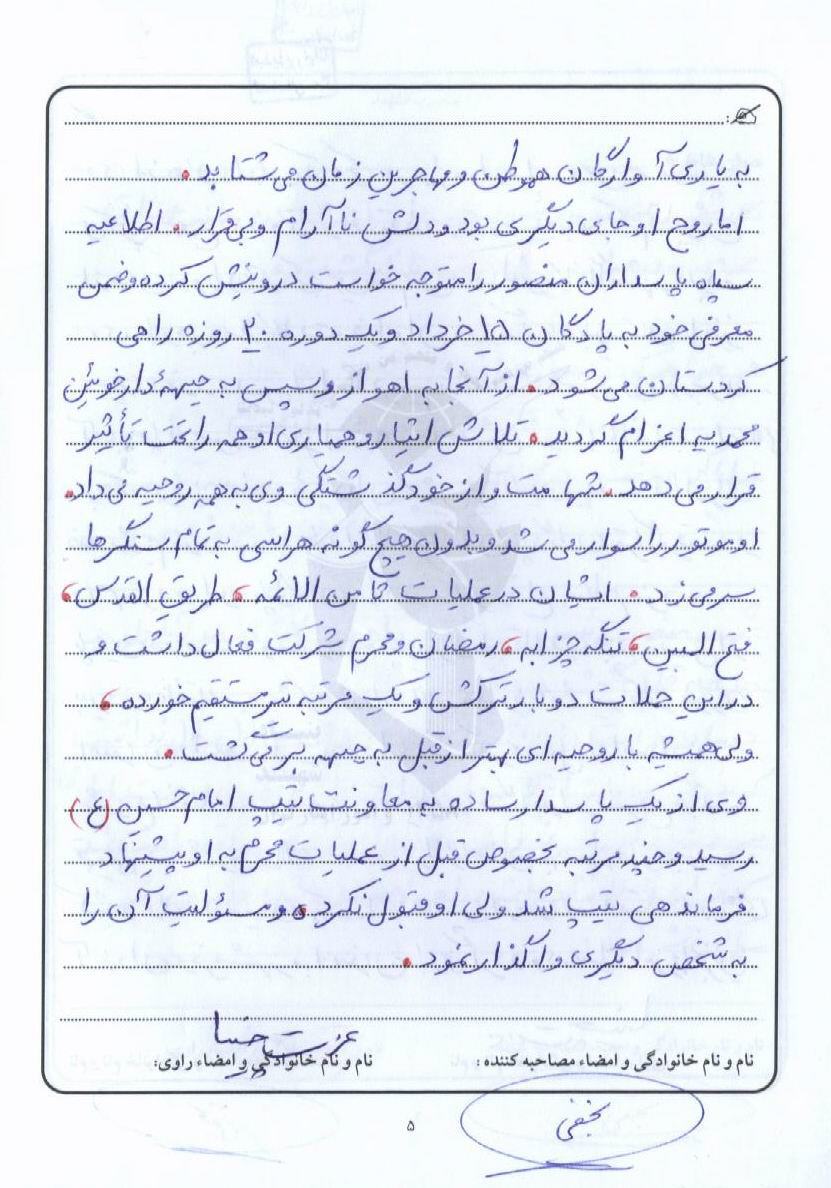 به یاری آوارگان هموطن و مهاجرین زمان می‌شتابد.
اما روح او جای دیگری بود و دلش ناآرام و بی‌قرار. اطلاعیه
سپاه پاسداران منصور را متوجه خواست درونیش کرده و ضمن
معرفی خود به پادگان ۱۵ خرداد و یک دوره ۲۰ روزه راهی
کردستان می‌شود. از آنجا به اهواز و سپس به جبههٔ دارخوئین
محمدیه اعزام گردید. تلاش ایثار و همیاری او همه را تحت تأثیر
قرار می‌دهد. شهامت و از خودگذشتگی وی به همه روحیه می‌داد.
او موتور را سوار می‌شد و بدون هیچ گونه هراسی به تمام سنگرها
سر می‌زد. ایشان در عملیات ثامن الائمه، طریق القدس،
فتح المبین، تنگه چزابه، رمضان و محرم شرکت فعال داشت و
در این حملات دوبار ترکش و یک مرتبه تیر مستقیم خورده،
ولی همیشه با روحیه‌ای بهتر از قبل به جبهه بر می‌گشت.
وی از یک پاسدار ساده به معاونت تیپ امام حسین (ع)
رسید و چند مرتبه بخصوص قبل از عملیات محرم به او پیشنهاد
فرماندهی تیپ شد ولی او قبول نکرد. و مسئولیت آن را
به شخص دیگری واگذار نمود.
عزت
نام و نام خانوادگی و امضاء مصاحبه کننده : نام و نام خانوادگی و امضاء راوی:
نجفی
۵